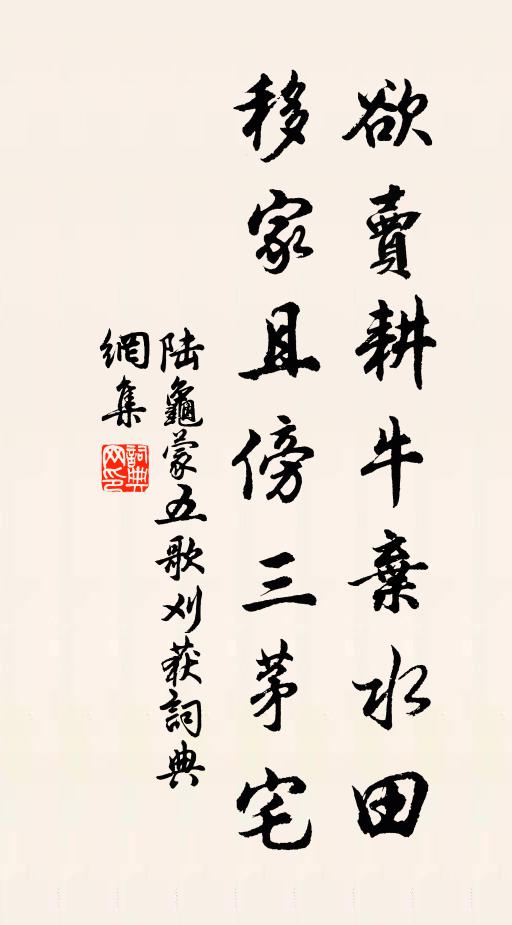 欲賣耕牛棄水田
移家且傍三茅宅
陆龜蒙五歌刈获詞典
網集
詞典网印